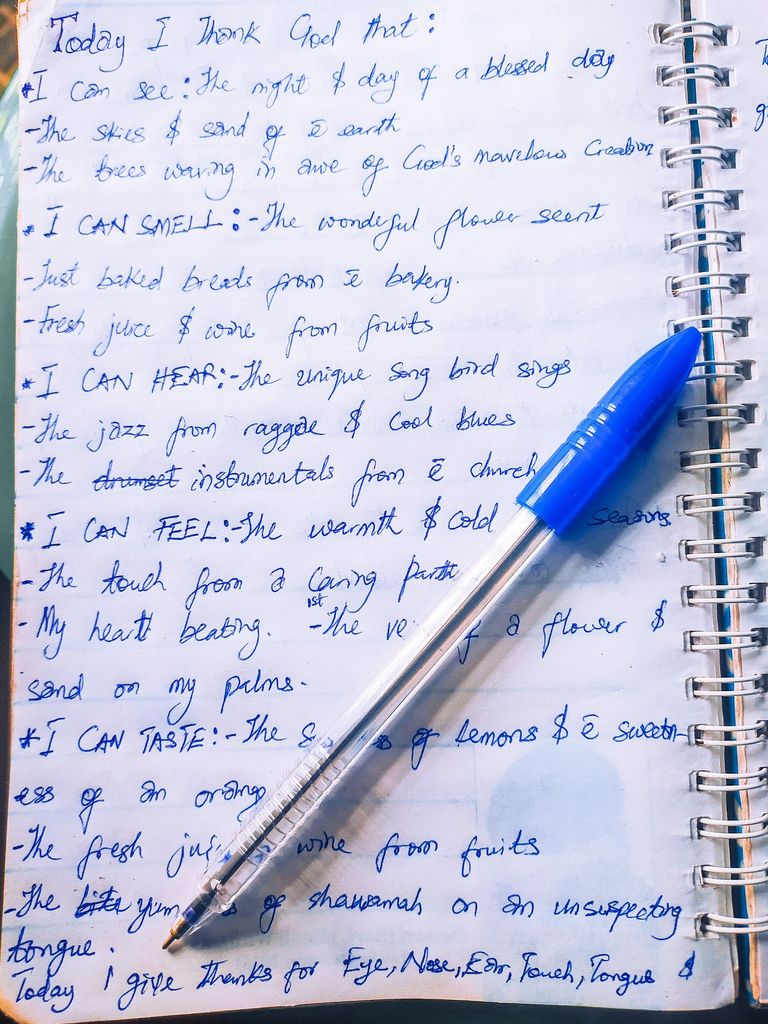 Today I Thank God that:
*I can see: The night & day of a blessed day
-The skies & sand of ē earth
-The trees waving in awe of God's marvelous Creation
* I CAN SMELL:-The wonderful flower scent
-Just baked breads from ē bakery.
-Fresh juice & wine from fruits
*I CAN HEAR:-The unique song bird sings
-The jazz from raggae & Cool blues
-The drumset instrumentals from ē church
*I CAN FEEL:-The warmth & cold seasons
-The touch from a Caring
-My heart beating. 1st -The of a flower &
sand on my palms.
*I CAN TASTE:-The of lemons & ē sweetn-
ess of an orange
-The fresh wine from fruits
-The of shawamah on an unsuspecting
tongue.
Today I give thanks for Eye, Nose, Ear, Touch, Tongue &